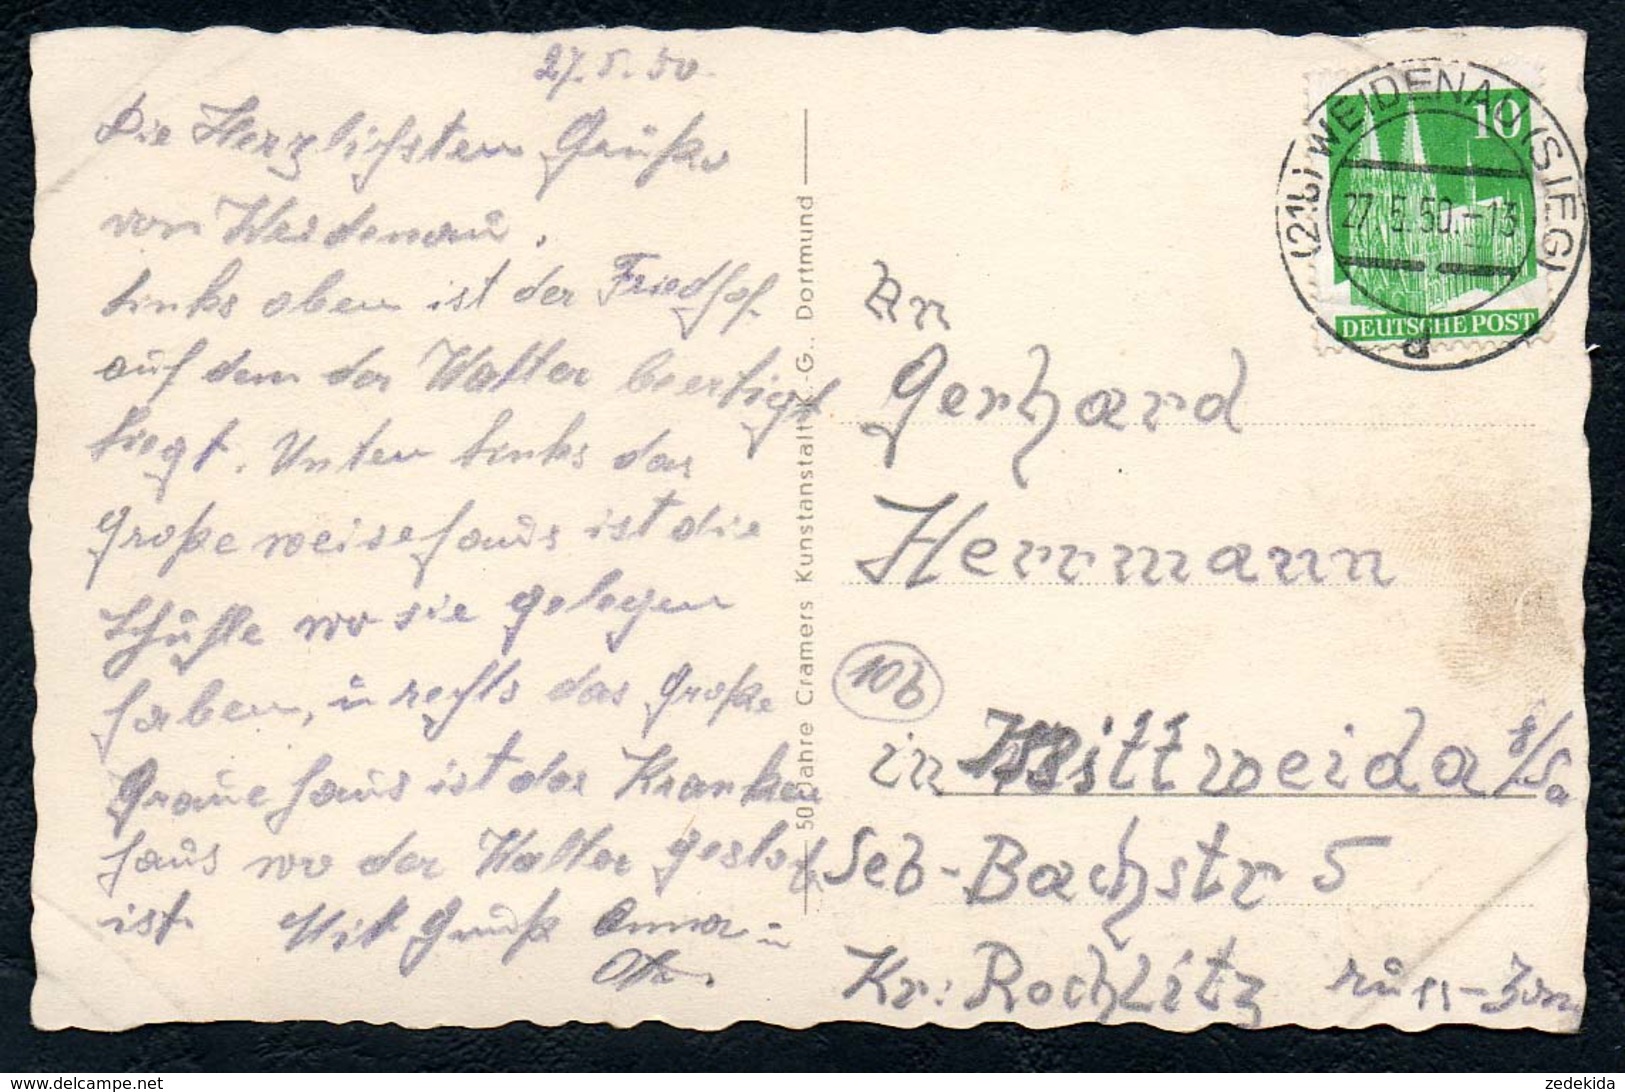 27.5.50.
Die Herzlichsten Grüße
von Weidenau.
Links oben ist der Friedhof
auf dem der Walter beertigt
liegt. Unten links das
große weise haus ist die
Schuhle wo sie gelegen
haben, u rechts das Große
Graue haus ist das Kranken
haus wo der Walter gestorb
ist. Mit Gruß Anna u
Otto.
50 Jahre Cramers Kunstanstalt K.-G., Dortmund
(21b) WEIDENAU (SIEG)
27.5.50.-13
d
10
DEUTSCHE POST
An
Gerhard
Herrmann
10b
in Mittweida /Sa
Seb-Bachstr 5
Kr: Rochlitz russ-Zon
zedekida